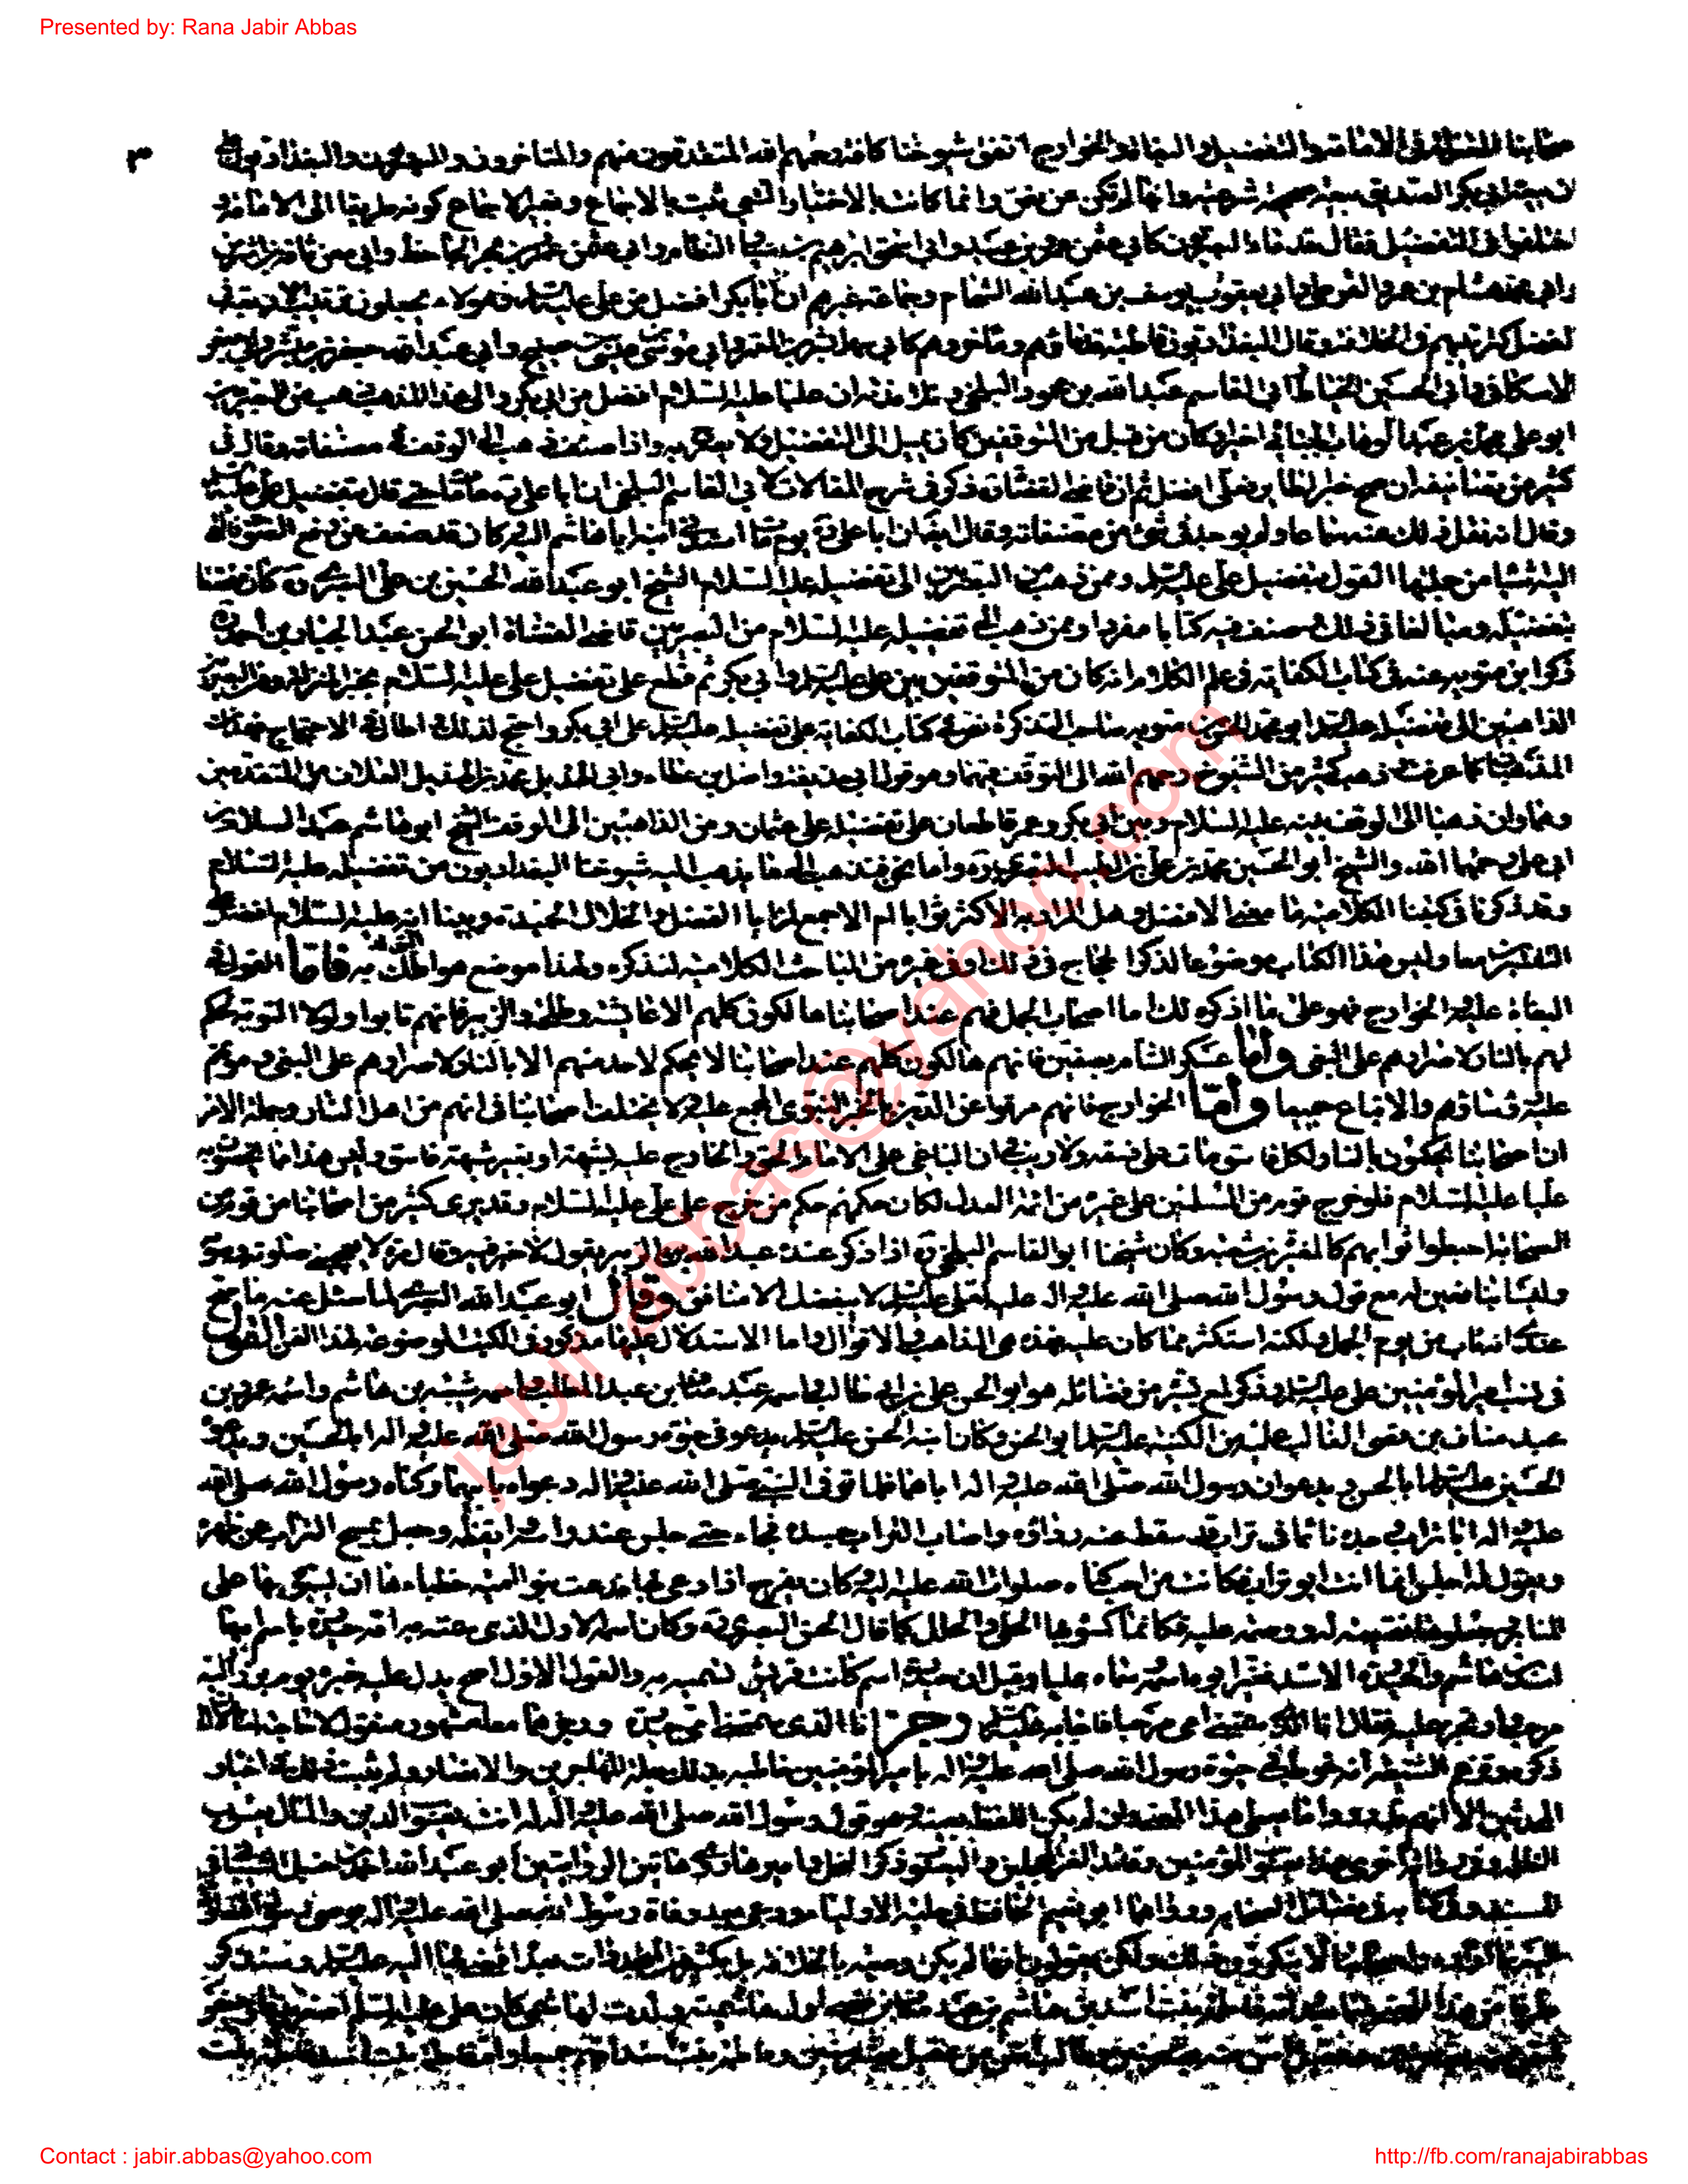 Presented by: Rana Jabir Abbas
٣
في الامامة والتفضيل والبغاة والخوارج اتفق شيوخنا كافة رحمهم الله المتقدمون منهم والمتاخرون والبصريون والبغداديون على
ان بيعة ابي بكر الصديق بيعة صحيحة شرعية وانها لم تكن عن نص وانما كانت بالاختيار الذي ثبت بالاجماع وبغير الاجماع كونه طريقا الى الامامة و
اختلفوا في التفضيل فقال قدماء البصريين كابي عثمن عمرو بن عبيد وابي اسحق ابرهيم بن سيار النظام وابي عثمن عمرو بن بحر الجاحظ وابي معن ثمامة بن اشرس
وابي محمد هشام بن عمرو الفوطي وابي يعقوب يوسف بن عبد الله الشحام وجماعة غيرهم ان ابا بكر افضل من علي عليه السلم وهولاء يجعلون ترتيب الاربعة في
الفضل كترتيبهم في الخلافة وقال البغداديون قاطبة قدماؤهم ومتاخروهم كابي سهل بشر بن المعتمر وابي موسى عيسى بن صبيح وابي عبد الله جعفر بن مبشر وابي جعفر
الاسكافي وابي الحسين الخياط وابي القاسم عبد الله بن محمود البلخي وتلامذته ان عليا عليه السلام افضل من ابي بكر والى هذا المذهب ذهب من البصريين
ابو علي محمد بن عبد الوهاب الجبائي اخيرا وكان من قبل من المتوقفين كان يميل الى التفضيل ولا يصرح به واذا صنف ذهب الى الوقف في مصنفاته وقال في
كثير من تصانيفه ان صح خبر الطاير فعلي افضل ثم ان قاضي القضاة ذكر في شرح المقالات لابي القاسم البلخي ان ابا علي ره ما مات حتى قال بتفضيل علي عليه السلم
وقال انه نقل ذلك عنه سماعا ولم يوجد في شيء من مصنفاته وقال ايضا ان ابا علي ره يوم مات استدنى ابنه ابا هاشم اليه وكان قد ضعف عن رفع الصوت فالقى
اليه اشيا من جملتها القول بتفضيل علي عليه السلم وممن ذهب من البصريين الى تفضيله عليه السلام الشيخ ابو عبد الله الحسين بن علي البصري ره كان متحققا
بتفضيله ومبالغا في ذلك وصنف فيه كتابا مفردا وممن ذهب الى تفضيله عليه السلام من البصريين قاضي القضاة ابو الحسن عبد الجبار بن احمد ره
ذكر ابن متويه عنه في كتاب الكفاية في علم الكلام انه كان من المتوقفين بين علي عليه السلم وابي بكر ثم قطع على تفضيل علي عليه السلام بخبر المنزلة ومن البصريين
الذاهبين الى تفضيله عليه السلم ابو محمد الحسن بن متويه صاحب التذكرة نص في كتاب الكفاية على تفضيله عليه السلم على ابي بكر واحتج لذلك واطال في الاحتجاج فهذان
المذهبان كما عرفت وذهب كثير من الشيوخ رحمهم الله الى التوقف فيهما وهو قول ابي حذيفة واصل بن عطاء وابي الهذيل محمد بن الهذيل العلاف من المتقدمين
وهما وان ذهبا الى الوقف بينه عليه السلام وبين ابي بكر وعمر قاطعان على تفضيله على عثمان ومن الذاهبين الى الوقف الشيخ ابو هاشم عبد السلام بن
ابي علي رحمهما الله والشيخ ابو الحسين محمد بن علي بن الطيب البصري ره واما نحن فنذهب الى ما يذهب اليه شيوخنا البغداديون من تفضيله عليه السلام
وقد ذكرنا في كتبنا الكلامية ما معنى الافضل وهل المراد به الاكثر ثوابا ام الاجمع لمزايا الفضل والخلال الحميدة وبينا انه عليه السلام افضل على
التفسيرين معا وليس هذا الكتاب موضوعا لذكر الحجاج في ذلك او في غيره من المباحث الكلامية لنذكره ولهذا موضع هو املك به فاما القول في
البغاة عليه والخوارج فهو على ما اذكره لك اما اصحاب الجمل فهم عند اصحابنا هالكون كلهم الا عايشة وطلحة والزبير فانهم تابوا ولولا التوبة لحكم
لهم بالنار لاصرارهم على البغي واما عسكر الشام بصفين فانهم هالكون كلهم عند اصحابنا لا يحكم لاحد منهم الا بالنار لاصرارهم على البغي وموتهم
عليه رؤساؤهم والاتباع جميعا واما الخوارج فانهم مرقوا عن الدين بالخبر النبوي المجمع عليه ولا يختلف اصحابنا في انهم من اهل النار وجملة الامر
ان اصحابنا يحكمون بالنار لكل فاسق مات على فسقه ولا ريب في ان الباغي على الامام الحق والخارج عليه بشبهة او بغير شبهة فاسق وليس هذا مما يخصون به
عليا عليه السلام فلو خرج قوم من المسلمين على غيره من ائمة العدل لكان حكمهم حكم من خرج على علي عليه السلام وقد برئ كثير من اصحابنا من قوم من
الصحابة احبطوا ثوابهم كالمغيرة بن شعبة وكان شيخنا ابو القاسم البلخي ره اذا ذكر عنده عبد الله بن الزبير يقول لا خير فيه وقال مرة لا يعجبني صلوته وصومه
وليسا بنافعين له مع قول رسول الله صلى الله عليه واله لعلي عليه السلم لا يبغضك الا منافق وقال ابو عبد الله البصري لما سئل عنه ما صح
عندي انه تاب من يوم الجمل ولكنه استكثر مما كان عليه فهذه هي المذاهب والاقوال واما الاستدلال عليها فهو مذكور في الكتب الموضوعة لهذا الفن القول
في نسب امير المؤمنين علي عليه السلم وذكر لمع يسيرة من فضائله هو ابو الحسن علي بن ابي طالب واسمه عبد مناف بن عبد المطلب واسمه شيبة بن هاشم واسمه عمرو بن
عبد مناف بن قصي الغالب عليه من الكنية عليه السلم ابو الحسن وكان ابنه الحسن عليه السلم يدعوه في حيوة رسول الله صلى الله عليه واله ابا الحسين ويدعوه
الحسين عليه السلم ابا الحسن ويدعوان رسول الله صلى الله عليه واله اباهما فلما توفي النبي صلى الله عليه واله دعواه بابيهما وكناه رسول الله صلى الله
عليه واله ابا تراب وجده نائما في تراب قد سقط عنه رداؤه واصاب التراب جسده فجاء حتى جلس عند راسه وايقظه وجعل يمسح التراب عن ظهره
ويقول له اجلس انما انت ابو تراب فكانت من احب كناه صلوات الله عليه اليه وكان يفرح اذا دعي بها فدعت بنو امية خطباءها ان يسبوه بها على
المنابر وجعلوها نقيصة له ووصمة عليه فكانما كسوه بها الحلي والحلل كما قال الحسن البصري ره وكان اسمه الاول الذي سمته به امه حيدرة باسم ابيها
اسد بن هاشم والحيدرة الاسد فغير ابوه اسمه وسماه عليا وقيل ان حيدرة اسم كانت قريش تسميه به والقول الاول اصح يدل عليه خبره يوم برز اليه
مرحب وارتجز عليه فقال انا الذي سمتني امي مرحبا فاجابه عليه السلم رجزا انا الذي سمتني امي حيدرة ورجزهما معا مشهور منقول لا حاجة لنا الان الى
ذكره وتزعم الشيعة انه خوطب في حيوة رسول الله صلى الله عليه واله بامير المؤمنين خاطبه بذلك جلة المهاجرين والانصار ولم يثبت ذلك في اخبار
المحدثين الا انهم قد رووا ما يعطي هذا المعنى وان لم يكن اللفظ بعينه وهو قول رسول الله صلى الله عليه واله له انت يعسوب الدين والمال يعسوب
الظلمة وفي رواية اخرى هذا يعسوب المؤمنين وقائد الغر المحجلين واليعسوب ذكر النحل واميرها روى هاتين الروايتين ابو عبد الله احمد بن حنبل الشيباني في
المسند وفي كتابه في فضائل الصحابة ورواهما ابو نعيم الحافظ في حلية الاوليا ودعي بعد وفاة رسول الله صلى الله عليه واله بوصي رسول الله
Contact : jabir.abbas@yahoo.com
http://fb.com/ranajabirabbas
jabir.abbas@yahoo.com